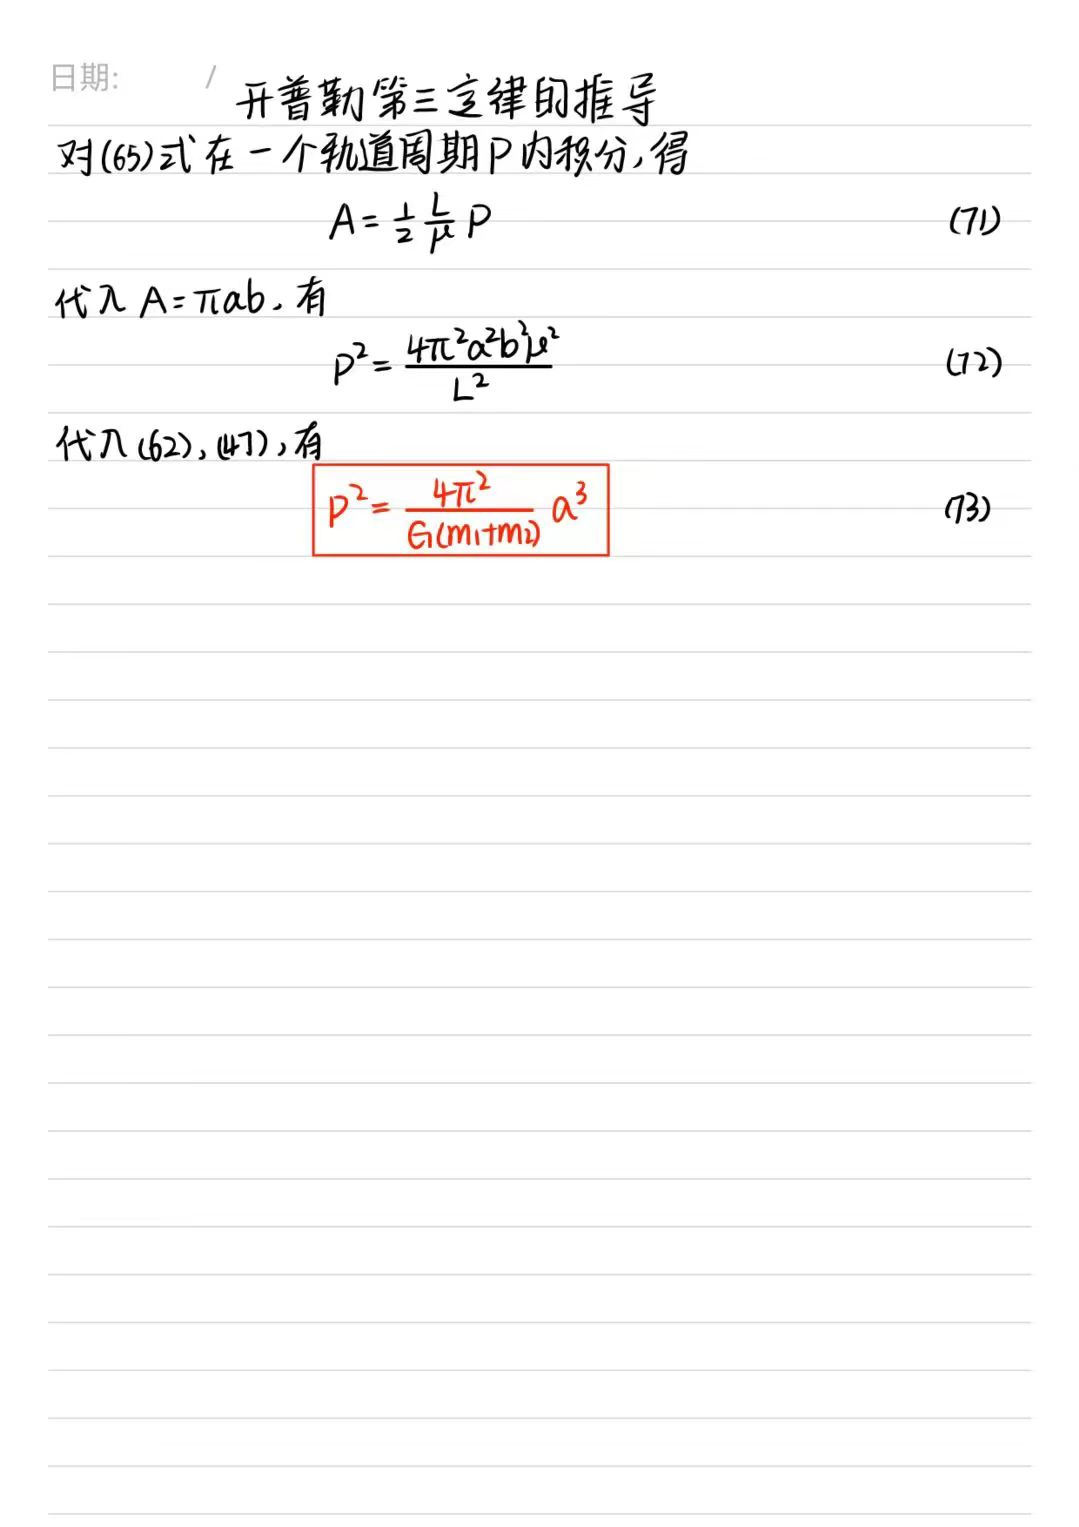 日期: /
开普勒第三定律的推导
对(65)式在一个轨道周期P内积分,得
A=½ L/μ P (71)
代入 A=πab,有
P²= 4π²a²b²μ²/L² (72)
代入(62),(47),有
P²= 4π²/G(m₁+m₂) a³ (73)